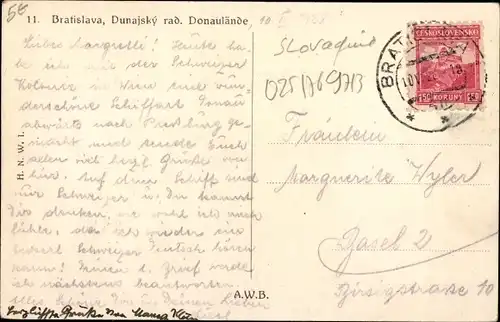 58
11. Bratislava, Dunajský rad. Donaulände,
Liebes Margritli! Heute ha-
be ich mit der Schweizer
Kolonie in Wien eine wun-
derschöne Schiffart Donau
abwärts nach Pressburg ge-
macht und sende Euch
allen viel herzl. Grüsse von
hier. Auf dem Schiff sind
nur Schweizer u. Du kannst
Dir denken, wie wohl ich mich
fühle, da ich wieder
Schweizer Deutsch hören
kann! Brief werde
ich nächstens beantworten.
alles Deinen lieben
Herzliche Grüsse von
H. N. W. I.
A.W.B.
Slovaquie
025/769713
BRATISLAVA
ČESKOSLOVENSKO
1.50 KORUNY
Fräulein
Marguerite Wyler
Basel 2
Birsigstrasse 10